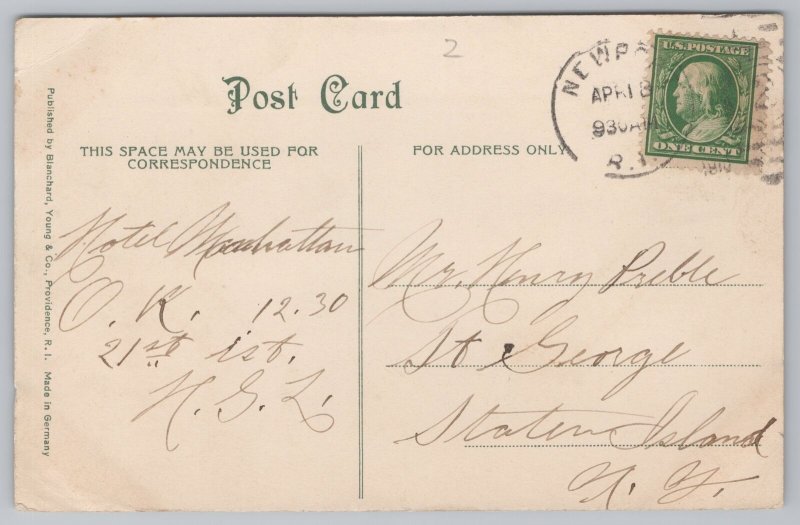 2
Post Card
THIS SPACE MAY BE USED FOR
CORRESPONDENCE
FOR ADDRESS ONLY
NEWPO
APR 18
930 AM
R.I.
1910
U.S. POSTAGE
ONE CENT
Published by Blanchard, Young & Co., Providence, R. I. Made in Germany
Hotel Manhattan
O. K. 12.30
21st ist.
H. G. L.
Mr. Henry Preble
St George
Staten Island
N. Y.